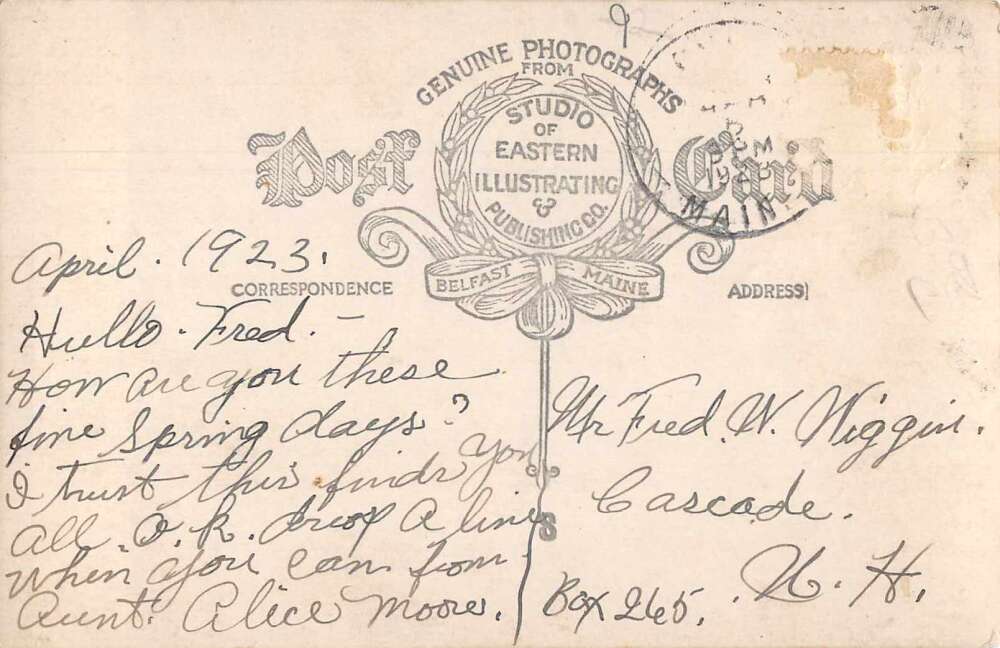 GENUINE PHOTOGRAPHS
FROM
STUDIO
OF
EASTERN
ILLUSTRATING
&
PUBLISHING CO.
BELFAST MAINE
Post Card
MAIN
CORRESPONDENCE
ADDRESS
April. 1923.
Hullo. Fred. —
How are you these
fine Spring days?
I trust this finds you
all. O.K. drop a line
when you can from
Aunt. Alice Moore.
Mr Fred. W. Wiggin.
Cascade.
N. H.
Box 265.
S